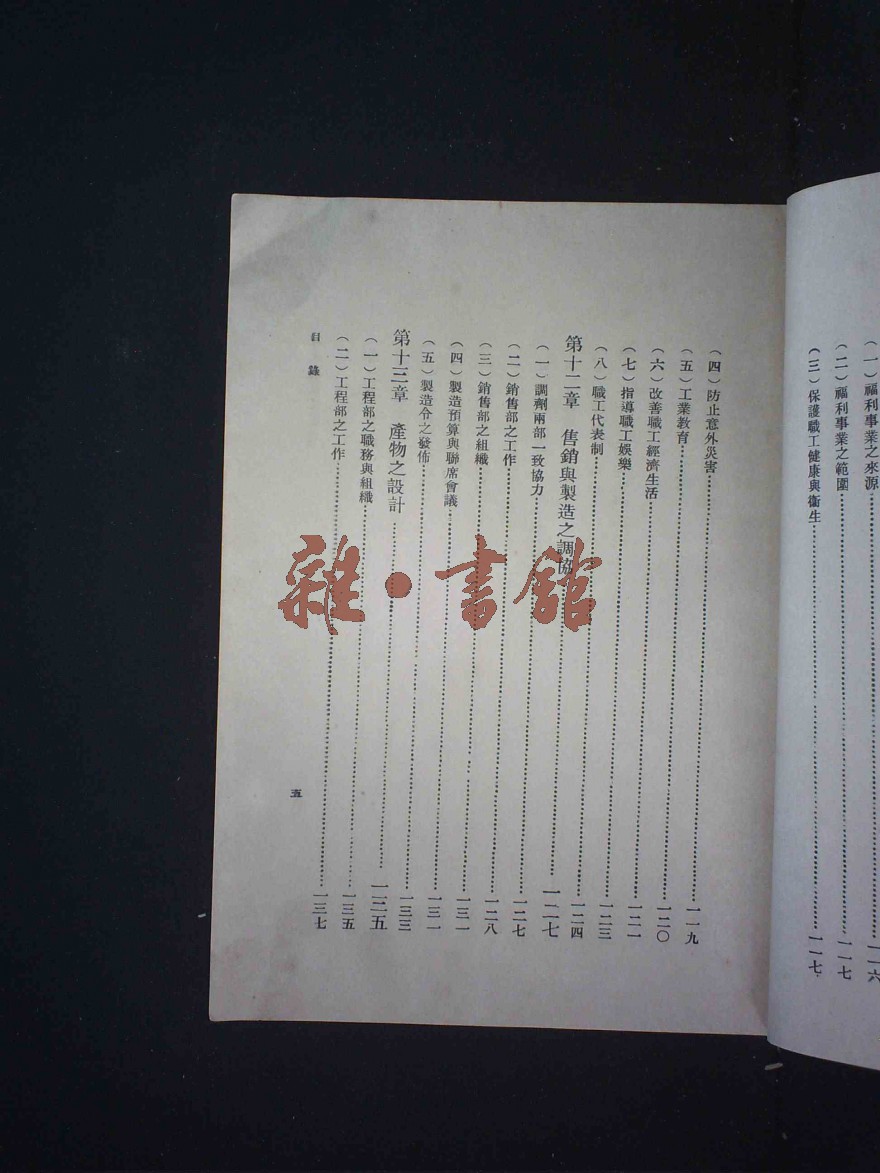 （一）福利事業之來源……一一六
（二）福利事業之範圍……一一七
（三）保護職工健康與衞生……一一七
（四）防止意外災害……一一九
（五）工業教育……一二〇
（六）改善職工經濟生活……一二一
（七）指導職工娛樂……一二三
（八）職工代表制……一二四
第十二章　售銷與製造之調協……一二七
（一）調劑兩部一致協力……一二七
（二）銷售部之工作……一二八
（三）銷售部之組織……一三一
（四）製造預算與聯席會議……一三一
（五）製造令之發佈……一三三
第十三章　產物之設計……一二五
（一）工程部之職務與組織……一三五
（二）工程部之工作……一三七
目錄
五
雜·書館